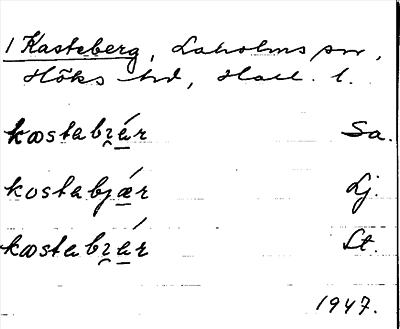 1 Kasteberg, Laholms sn,
Höks hd, Hall. l.
kastabɪ̯ǽr Sa.
kastabjær Lj.
kastabɪ̯ǽr Lt.
1947.